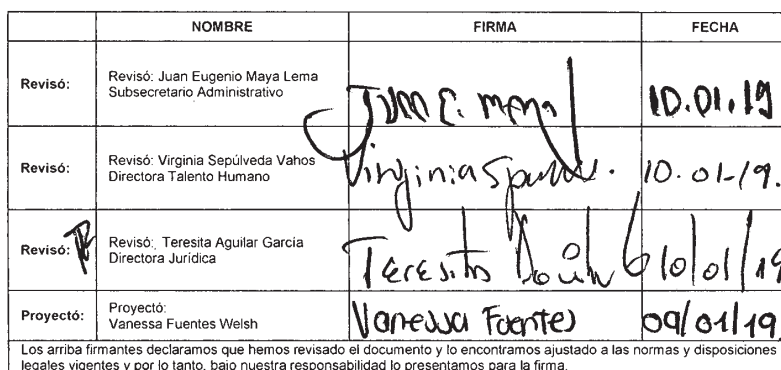 NOMBRE FIRMA FECHA
Revisó: Revisó: Juan Eugenio Maya Lema
Subsecretario Administrativo
Juan E. Maya 10.01.19
Revisó: Revisó: Virginia Sepúlveda Vahos
Directora Talento Humano
Virginia 10.01-19.
Revisó: Revisó: Teresita Aguilar García
Directora Jurídica
Teresita 10/01/19
Proyectó: Proyectó:
Vanessa Fuentes Welsh
Vanessa Fuentes 09/01/19
Los arriba firmantes declaramos que hemos revisado el documento y lo encontramos ajustado a las normas y disposiciones
legales vigentes y por lo tanto, bajo nuestra responsabilidad lo presentamos para la firma.